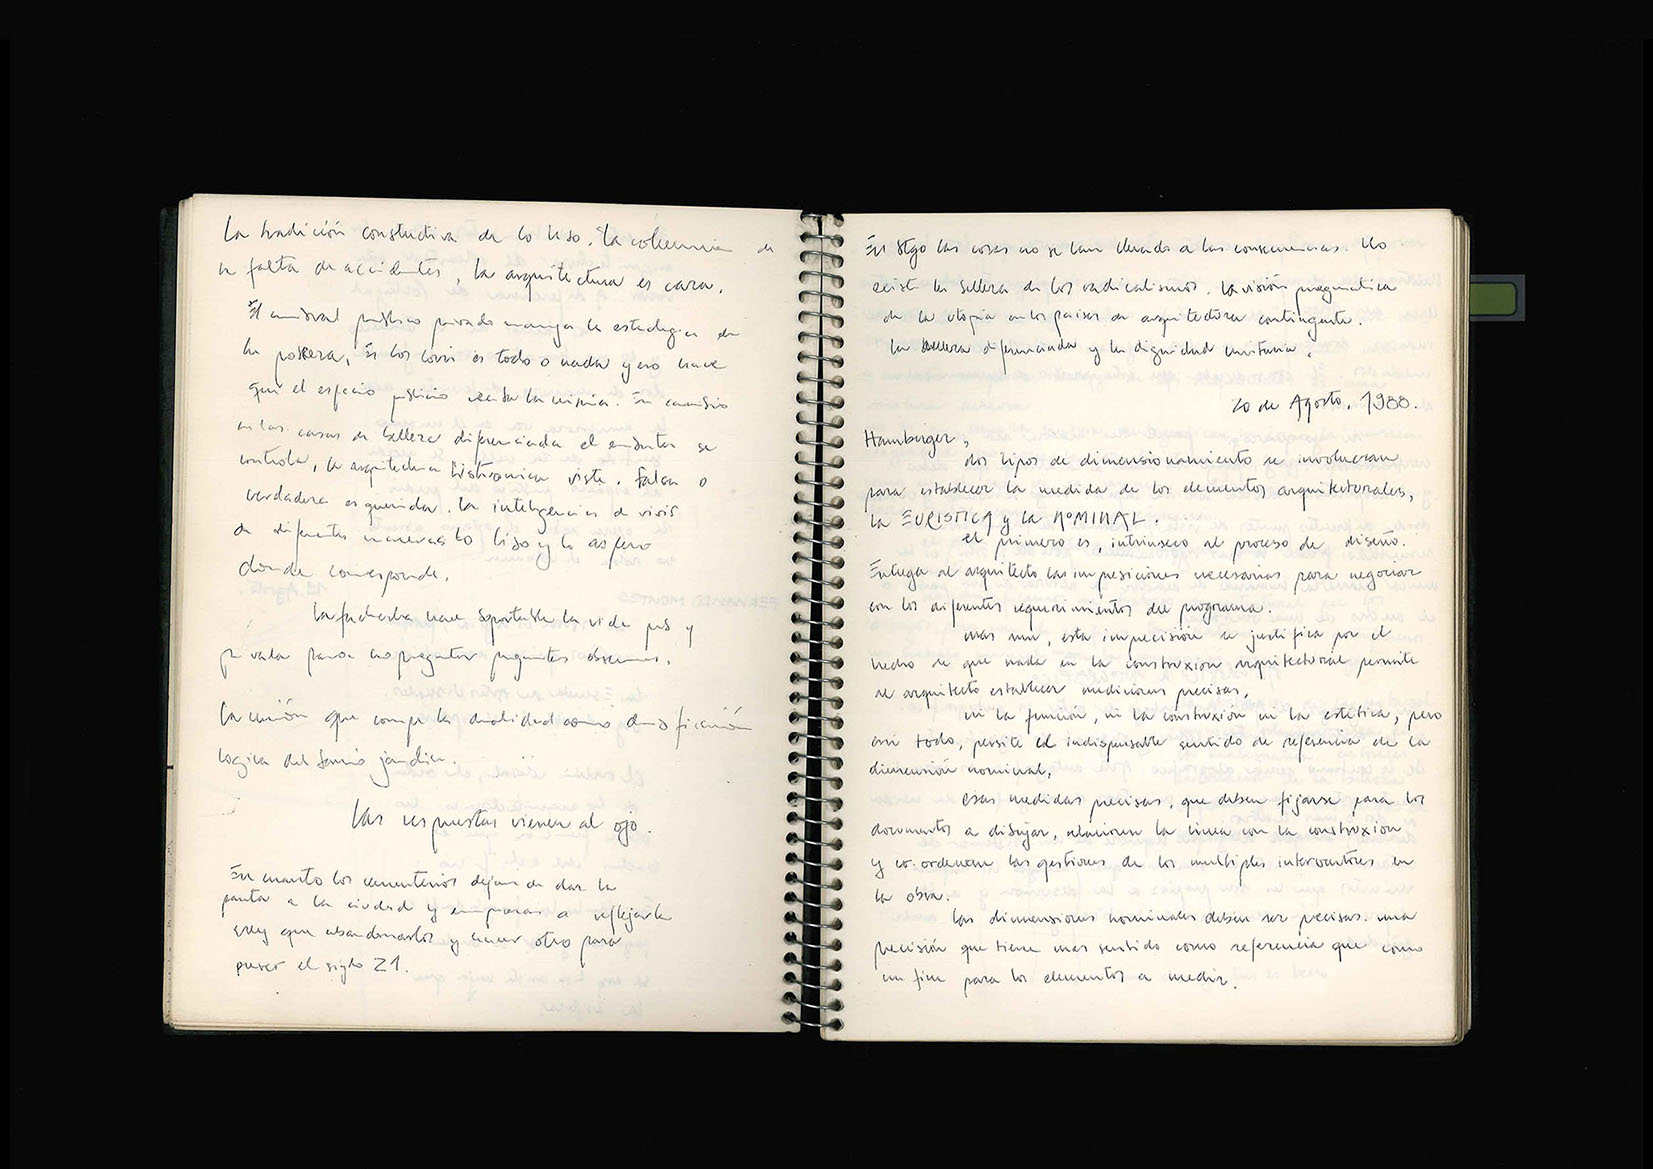 La tradición constructiva de lo liso, la
la falta de accidentes, la arquitectura es cara.
El público privado maneja la estrategia de
la es todo o nada y eso hace
que el espacio público la misma. En cambio
en las casas de belleza diferenciada el se
controla, la arquitectura histrionica viste. Falsa o
verdadera es querida. La inteligencia de vivir
de diferentes maneras lo liso y lo aspero
donde corresponde.
La fachada hace soportable la vida y
privada para no preguntar preguntas obscenas.
La que rompe la dualidad como
logica del
Las respuestas vienen al ojo.
En cuanto los cementerios dejan de dar la
pauta a la ciudad y empiezan a reflejarla
creo que abandonarlos y hacer otro para
el siglo 21.
En Stgo las cosas no se han llevado a las consecuencias. No
existe la belleza de los radicalismos. La visión pragmatica
de la utopia en los paises de arquitectura contingente.
La belleza diferenciada y la dignidad unitaria.
20 de Agosto, 1988.
Hamburger,
dos tipos de dimensionamiento se involucran
para establecer la medida de los elementos arquitectorales,
la EURISTICA y la NOMINAL.
el primero es, intrinseco al proceso de diseño.
Entrega al arquitecto las imprecisiones necesarias para negociar
con los diferentes requerimientos del programa.
mas aun, esta imprecisión se justifica por el
hecho de que nada en la construxion arquitectoral permite
al arquitecto establecer mediciones precisas,
ni la función, ni la construxión ni la estetica, pero
con todo, persiste el indispensable sentido de referencia de la
dimensión nominal,
esas medidas precisas, que deben fijarse para los
documentos a dibujar, relacionen la linea con la construxion
y co-ordenen las gestiones de los multiples interventores en
la obra.
las dimensiones nominales deben ser precisas. una
precisión que tiene mas sentido como referencia que como
un fin para los elementos a medir.